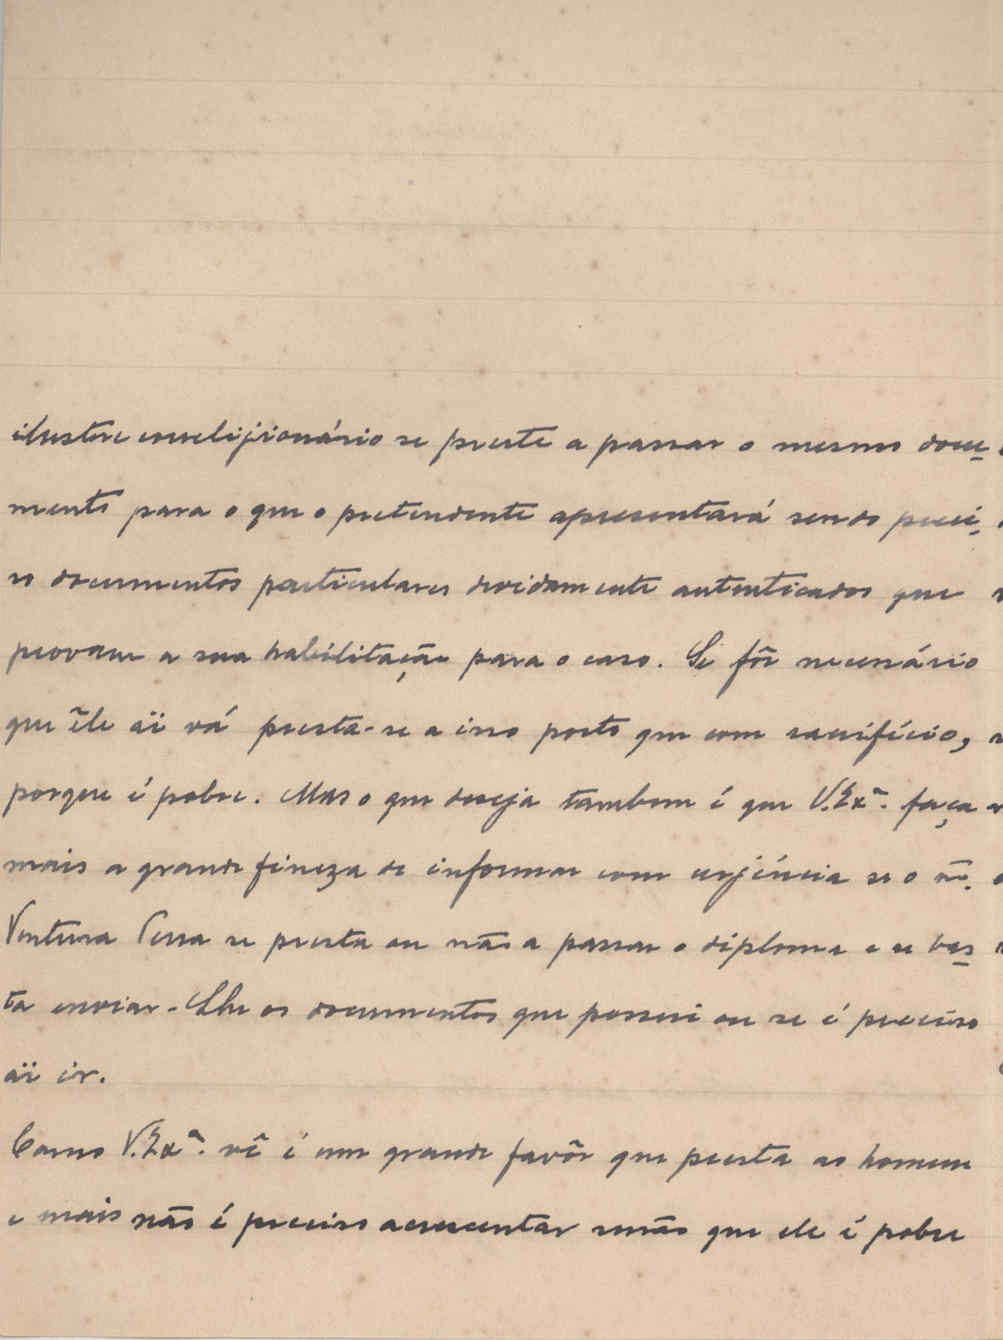 ilustre correlijionário se preste a passar o mesmo docu-
mento para o que o pretendente apresentará sendo preci-
so documentos particulares devidamente autenticados que
provam a sua habilitação para o caso. Se fôr necessário
que êle aï vá presta-se a isso posto que com sacrifício,
porque é pobre. Mas o que deseja tambem é que V. Exª. faça
mais a grande fineza de informar com urjência se o
Ventura Terra se presta ou não a passar o diploma e se bas-
ta enviar-Lhe os documentos que possui ou se é preciso
aï ir.
Como V. Exª. vê é um grande favôr que presta ao homem
e mais não é preciso acrescentar senão que ele é pobre